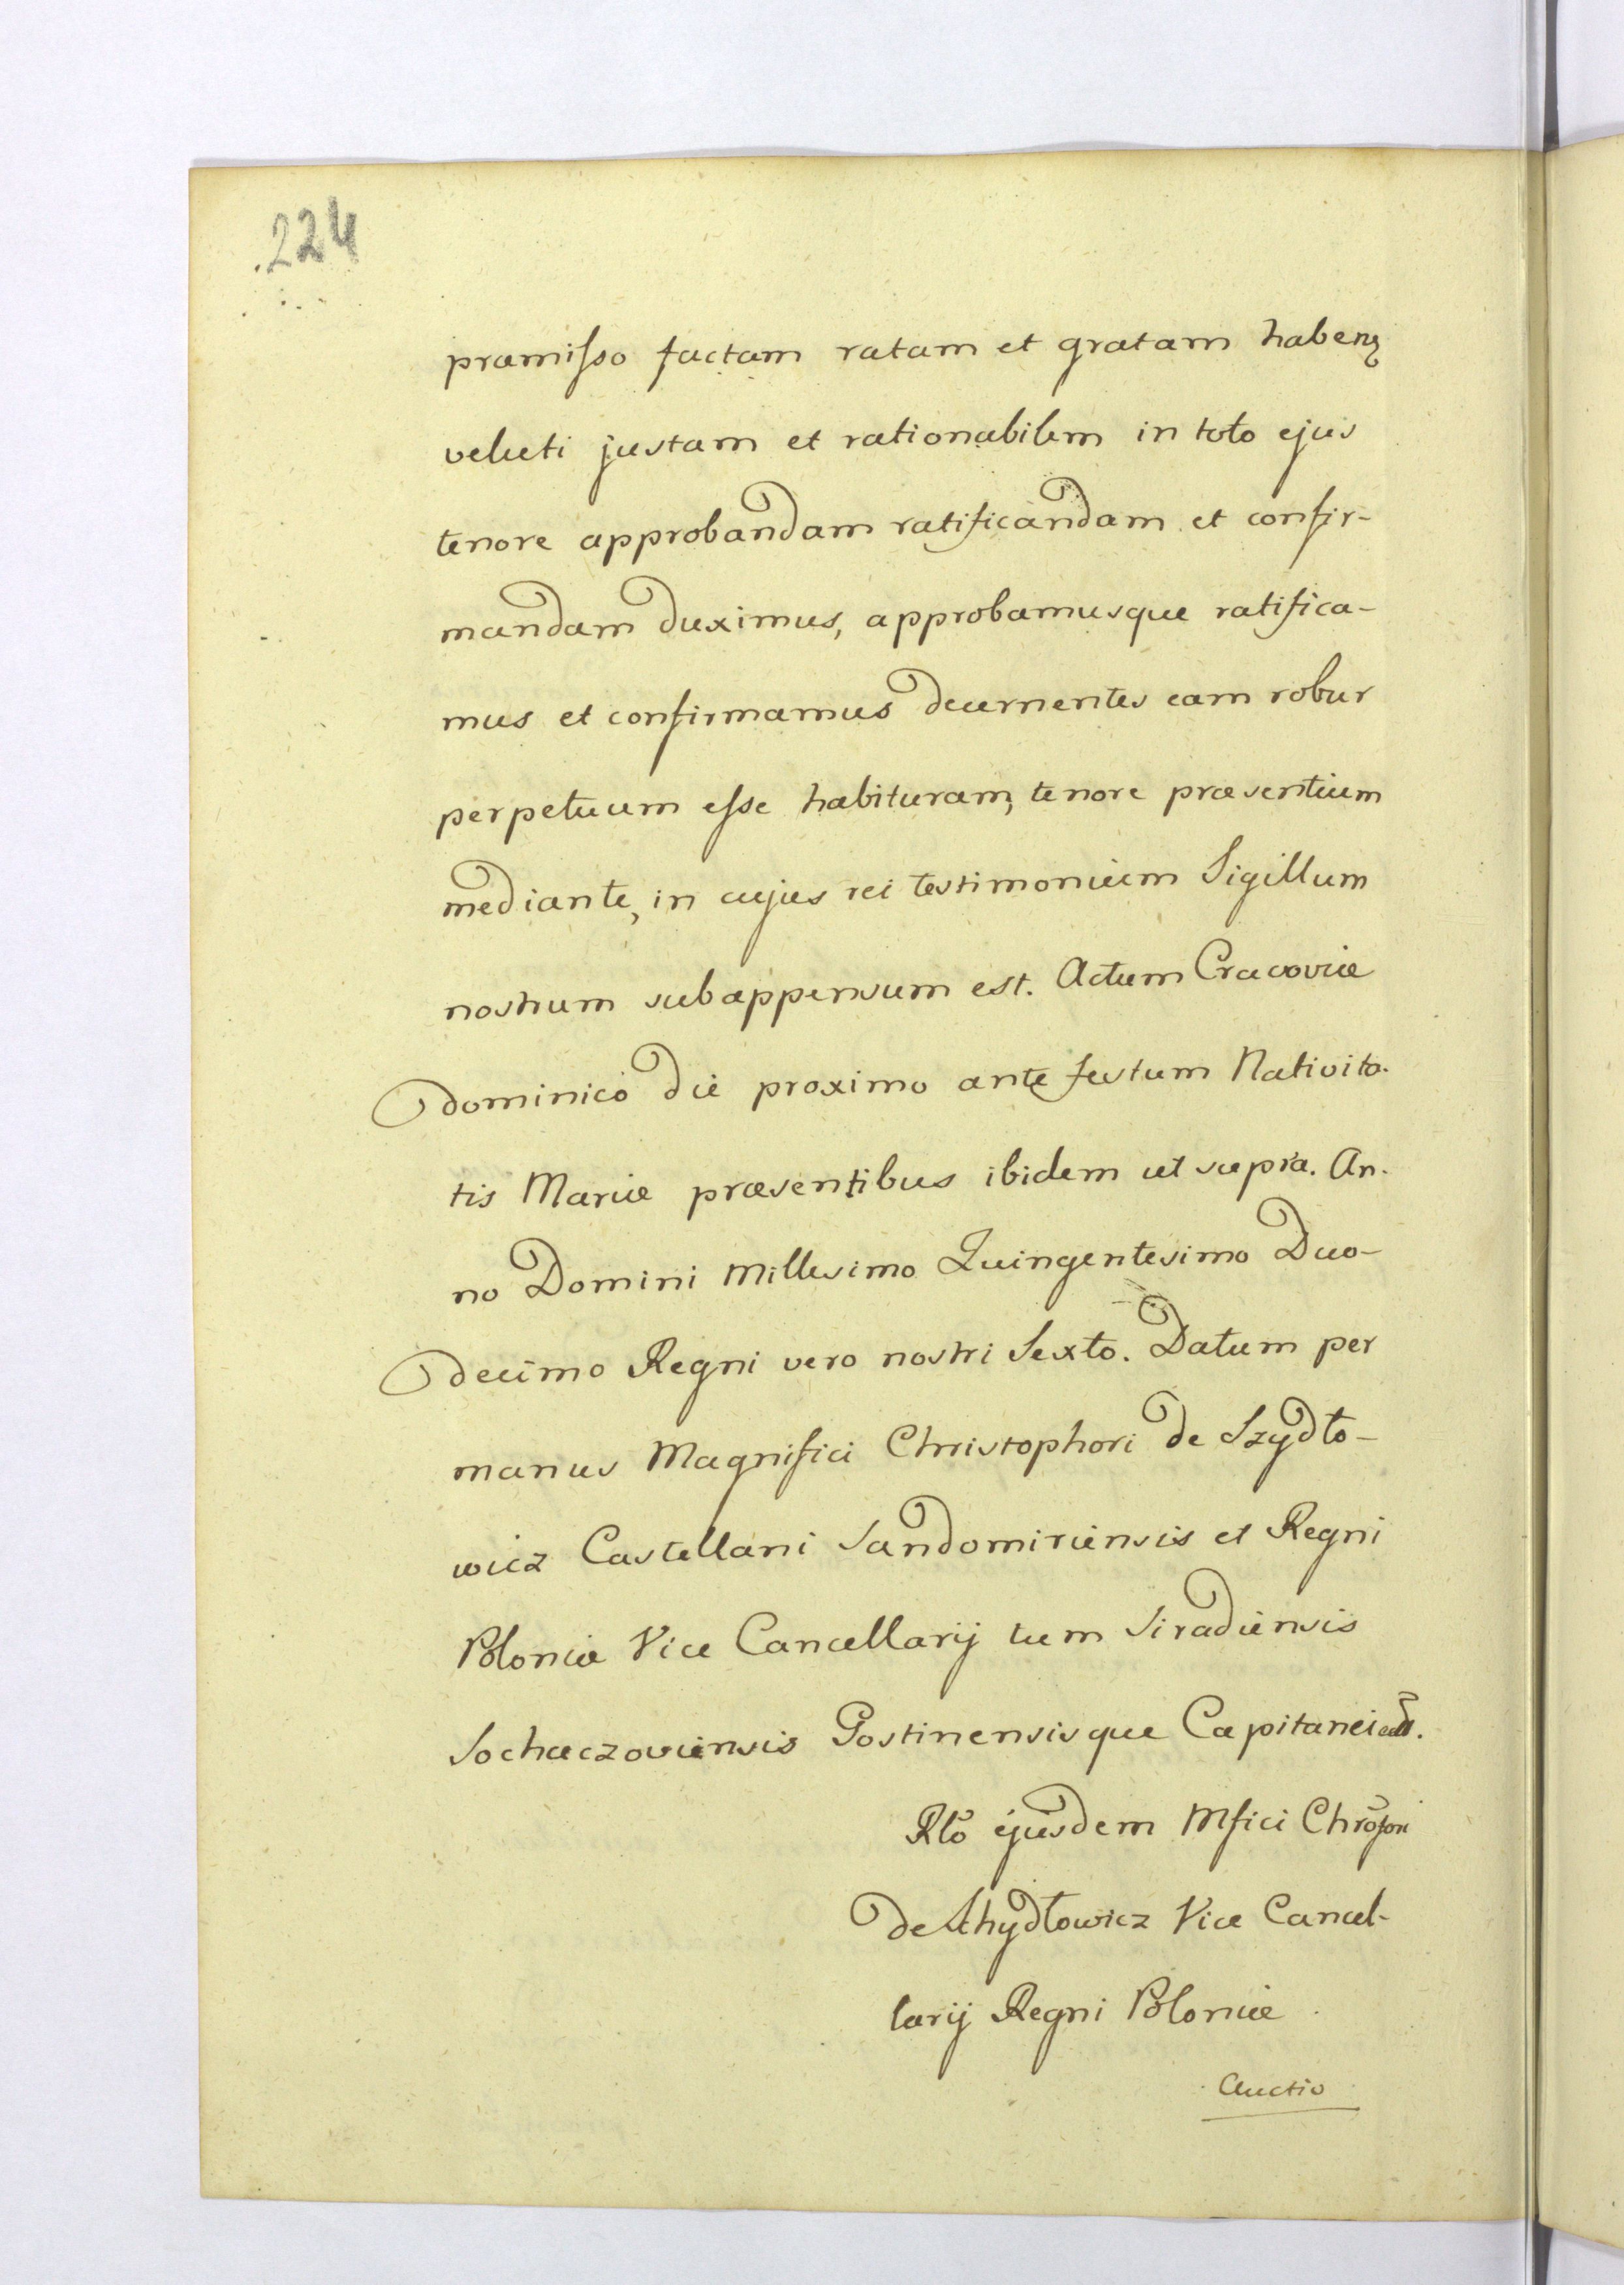 224
præmisso factam ratam et gratam haben
veluti justam et rationabilem in toto ejus
tenore approbandam ratificandam et confir-
mandam duximus, approbamusque ratifica-
mus et confirmamus decernentes eam robur
perpetuum esse habituram, tenore præsentium
mediante, in cujus rei testimonium Sigillum
nostrum subappensum est. Actum Cracoviæ
dominico die proximo ante festum Nativita-
tis Mariæ præsentibus ibidem ut supra. An-
no Domini Millesimo Quingentesimo Duo-
decimo Regni vero nostri Sexto. Datum per
manus Magnifici Christophori de Szydło-
wicz Castellani Sandomiriensis et Regni
Poloniæ Vice Cancellarij tum Siradiensis
Sochaczoviensis Gostinensisque Capitanei
Rło ejusdem Mfici Chrõfori
de Schydłowicz Vice Cancel-
larij Regni Poloniæ
Auctio